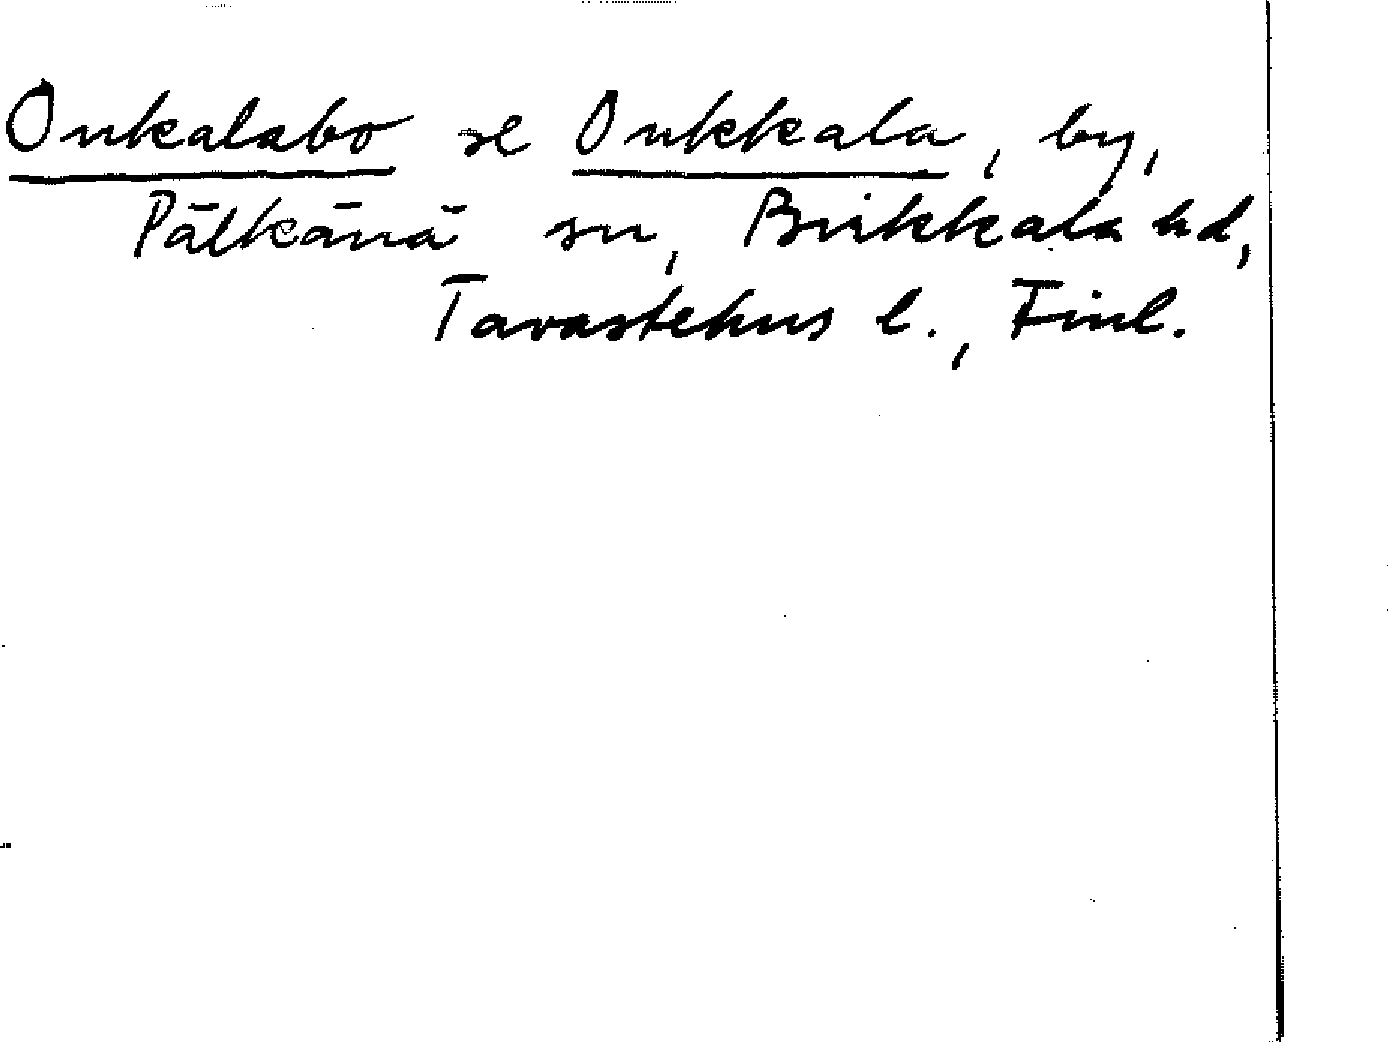 Onkalabo se Onkkala, by,
Pälkänä sn, Birkkala hd,
Tavastehus l., Finl.